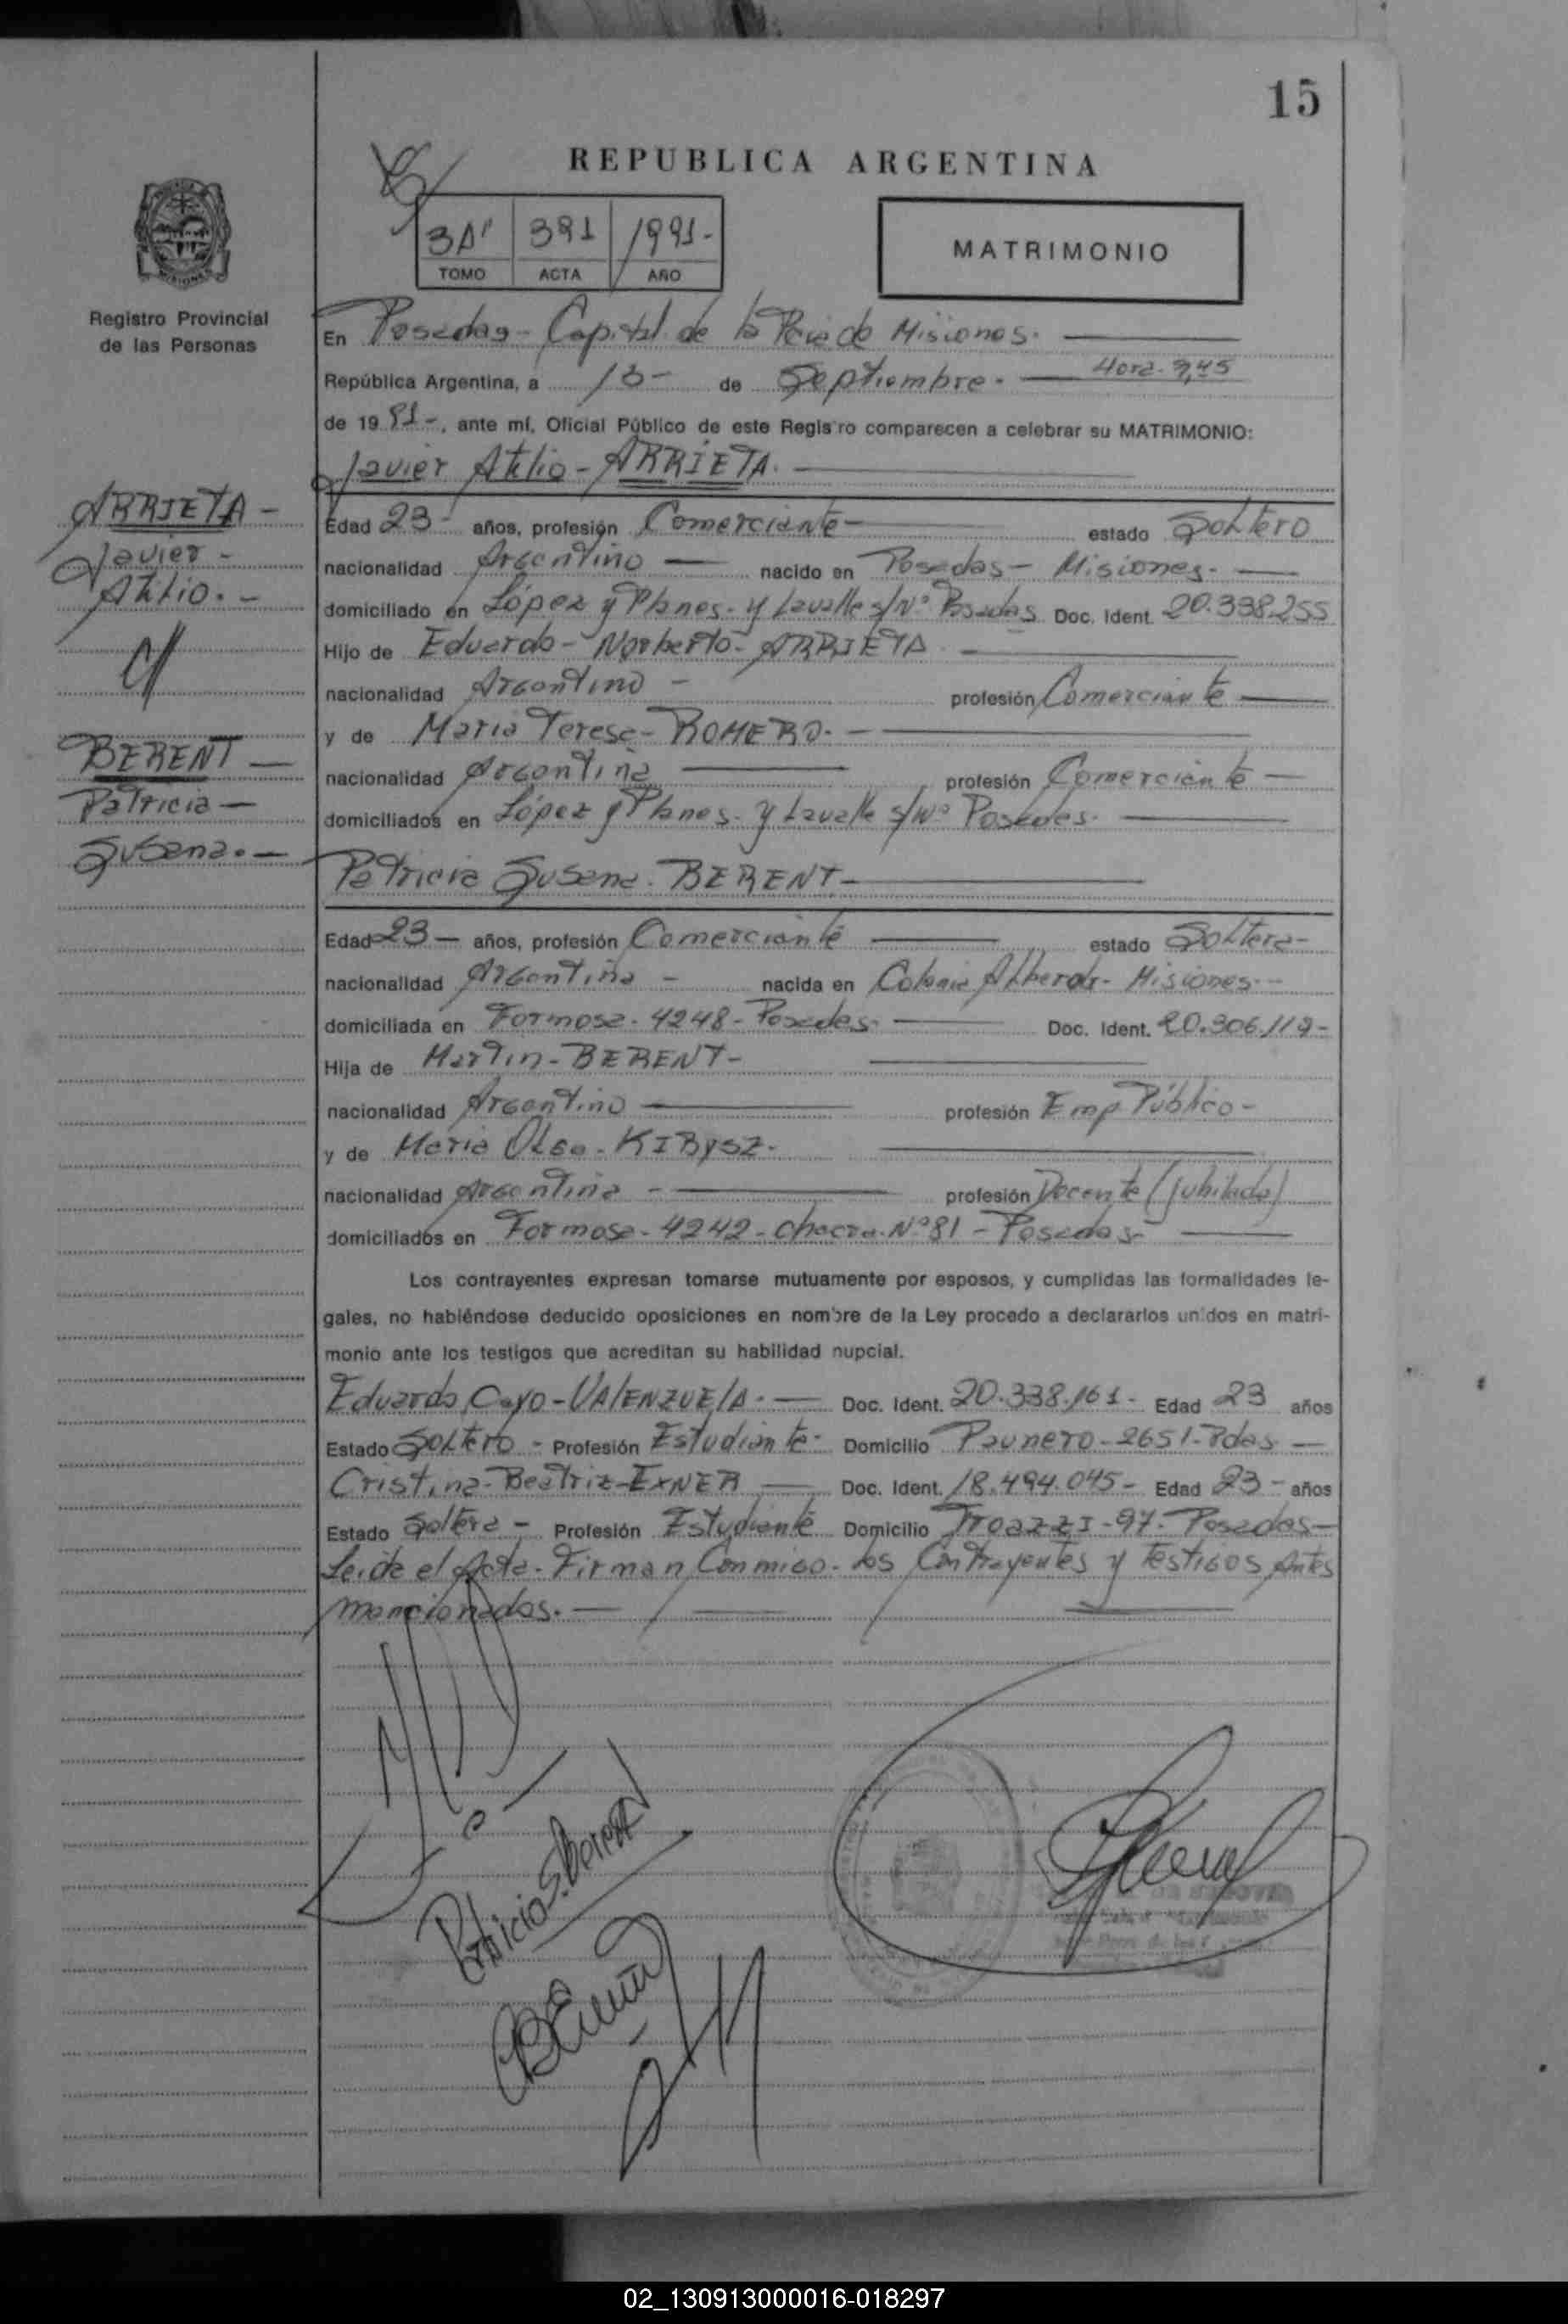 15
REPUBLICA ARGENTINA
3A' 391 1991-
TOMO ACTA AÑO
MATRIMONIO
Registro Provincial
de las Personas
En Posadas - Capital de la Pcia de Misiones.
República Argentina, a 13- de Septiembre. - Hora. 9,45
de 19 91-, ante mí, Oficial Público de este Registro comparecen a celebrar su MATRIMONIO:
Javier Atilio - ARRIETA.
ARRIETA -
Javier -
Atilio. -
Edad 23- años, profesión Comerciante - estado Soltero
nacionalidad Argentino nacido en Posadas - Misiones.
domiciliado en López y Planes. y Lavalle s/Nº Posadas Doc. Ident. 20.338.255
Hijo de Eduardo - Norberto - ARRIETA
nacionalidad Argentino - profesión Comerciante
y de Maria Teresa - ROMERO. -
nacionalidad Argentina profesión Comerciante -
domiciliados en López y Planes. y Lavalle s/Nº Posadas.
BERENT -
Patricia -
Susana. -
Patricia Susana. BERENT -
Edad 23 - años, profesión Comerciante estado Soltera -
nacionalidad Argentina - nacida en Colonia Alberdi - Misiones. -
domiciliada en Formosa - 4248 - Posadas. Doc. Ident. 20.306.119 -
Hija de Martin - BERENT -
nacionalidad Argentino profesión Emp Público -
y de Maria Olga - KIBYSZ.
nacionalidad Argentina - profesión Docente (jubilada)
domiciliados en Formosa - 4242 - Chacra. Nº 81 - Posadas
Los contrayentes expresan tomarse mutuamente por esposos, y cumplidas las formalidades le-
gales, no habiéndose deducido oposiciones en nombre de la Ley procedo a declararlos unidos en matri-
monio ante los testigos que acreditan su habilidad nupcial.
Eduardo Cayo - VALENZUELA. - Doc. Ident. 20.338.161 - Edad 23 años
Estado Soltero - Profesión Estudiante - Domicilio Paunero - 2651 - Pdas -
Cristina - Beatriz - EXNER Doc. Ident. 18.494.045 - Edad 23 - años
Estado Soltera - Profesión Estudiante Domicilio Troazzi - 97 - Posadas -
Leida el Acta - Firman Conmigo - los Contrayentes y testigos Antes
mencionados. -
Patricia S. Berent
02_130913000016-018297